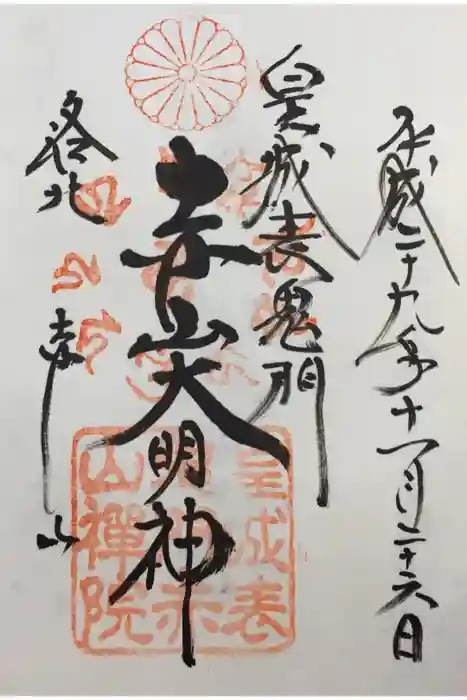 平成二十九年十一月二十六日
皇城表鬼門
赤山大明神
洛北
赤山
皇城表
山禅院